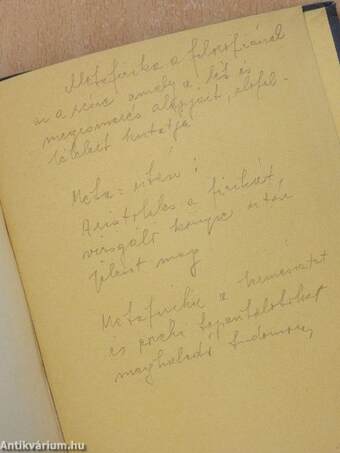 Metafizika a filozófiának
az a része amely a lét és
megismerés alapjait, előfel-
tételeit kutatja
Meta = után
Aristoteles a fizikát
vizsgáló könyve után
jelent meg
Metafizika a természetet
és érzéki tapasztalatokat
meghaladó tudomány
Antikvárium.hu